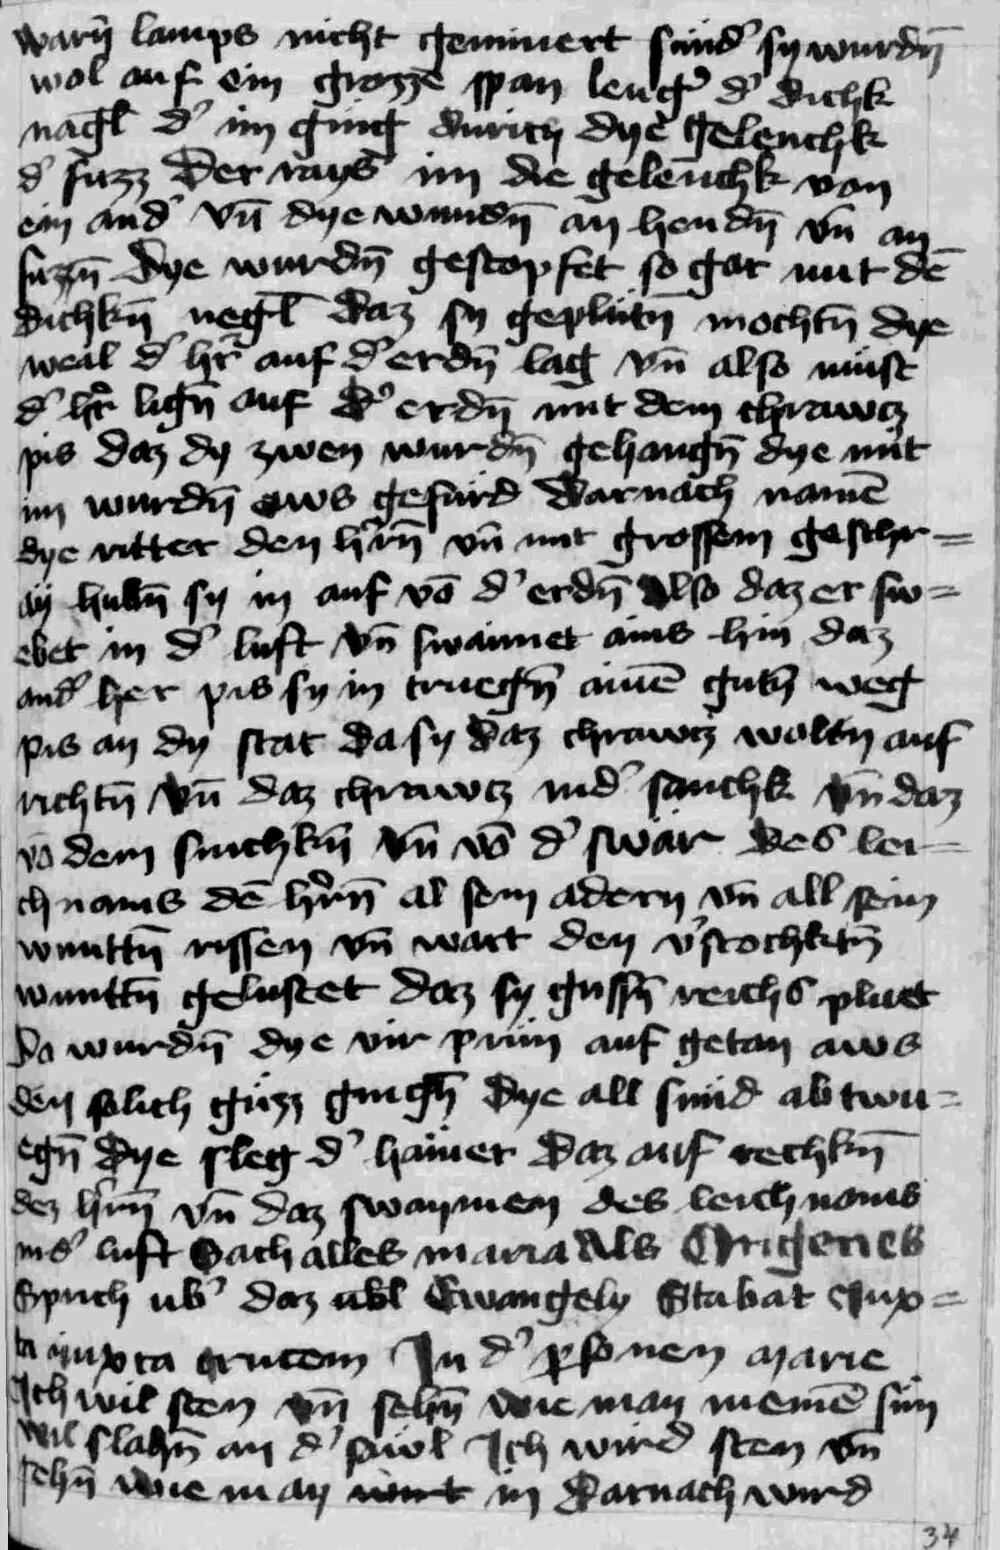 warn̄ lamps nicht gemiuert sund' sy wurdn̄
wol auf ein grozze span leng' d' dichk
nagl d' im ging durich dye gelenchk
d' fuzz Der rays im die gelenchk von
ein and' vn̄ dye wundn̄ an hendn̄ vn̄ an
fuzzn̄ Dye wurdn̄ gestopfet so gar mit dē
dichkn̄ negl daz sy geplutn̄ mochtn̄ dye
weal d' hr̄ auf d' erdn̄ lag vn̄ also must
d' hr̄ lign̄ auf d' erdn̄ mit dem chrawcz
pis daz dy zwen wurdn̄ gehangn̄ dye mit
im wurdn̄ aws gefurd darnach namē
dye ritter den hr̄n̄ vn̄ mit grossem geschr=
ay hubn̄ sy in auf vō d' erdn̄ Also daz er sw=
ebet in d' luft vn̄ swaimet ains hin daz
and' her pis sy in truegn̄ ainē gutn̄ weg
pis an dy stat da sy daz chrawcz woltn̄ auf
richtn̄ vn̄ daz chrawcz nid' sanchk vn̄ daz
vō dem sinchkn̄ vn̄ vō d' swär des lei=
chnams dē hr̄n̄ al sein adern vn̄ all sein
wunttn̄ rissen vn̄ wart den v'stochktn̄
wunttn̄ gelustet daz sy gussn̄ reichs pluet
Da wurdn̄ dye vir prün auf getan aws
den solich güzz gingn̄ Dye all sünd ab twu=
egn̄ Dye sleg d' hamer Daz auf rechkn̄
dez hr̄n̄ vn̄ daz swaymen des leichnams
in d' luft Sach alles maria Als Origenes
Sprich ub' daz ubl Ewangely Stabat Jux=
ta iuxta crucem In d' p̲sonen marie
Ich wil sten vn̄ sehn̄ wie man meinē sün
wil slahn̄ an d' sawl Ich wird sten vn̄
sehn̄ wie man in Darnach wird
34